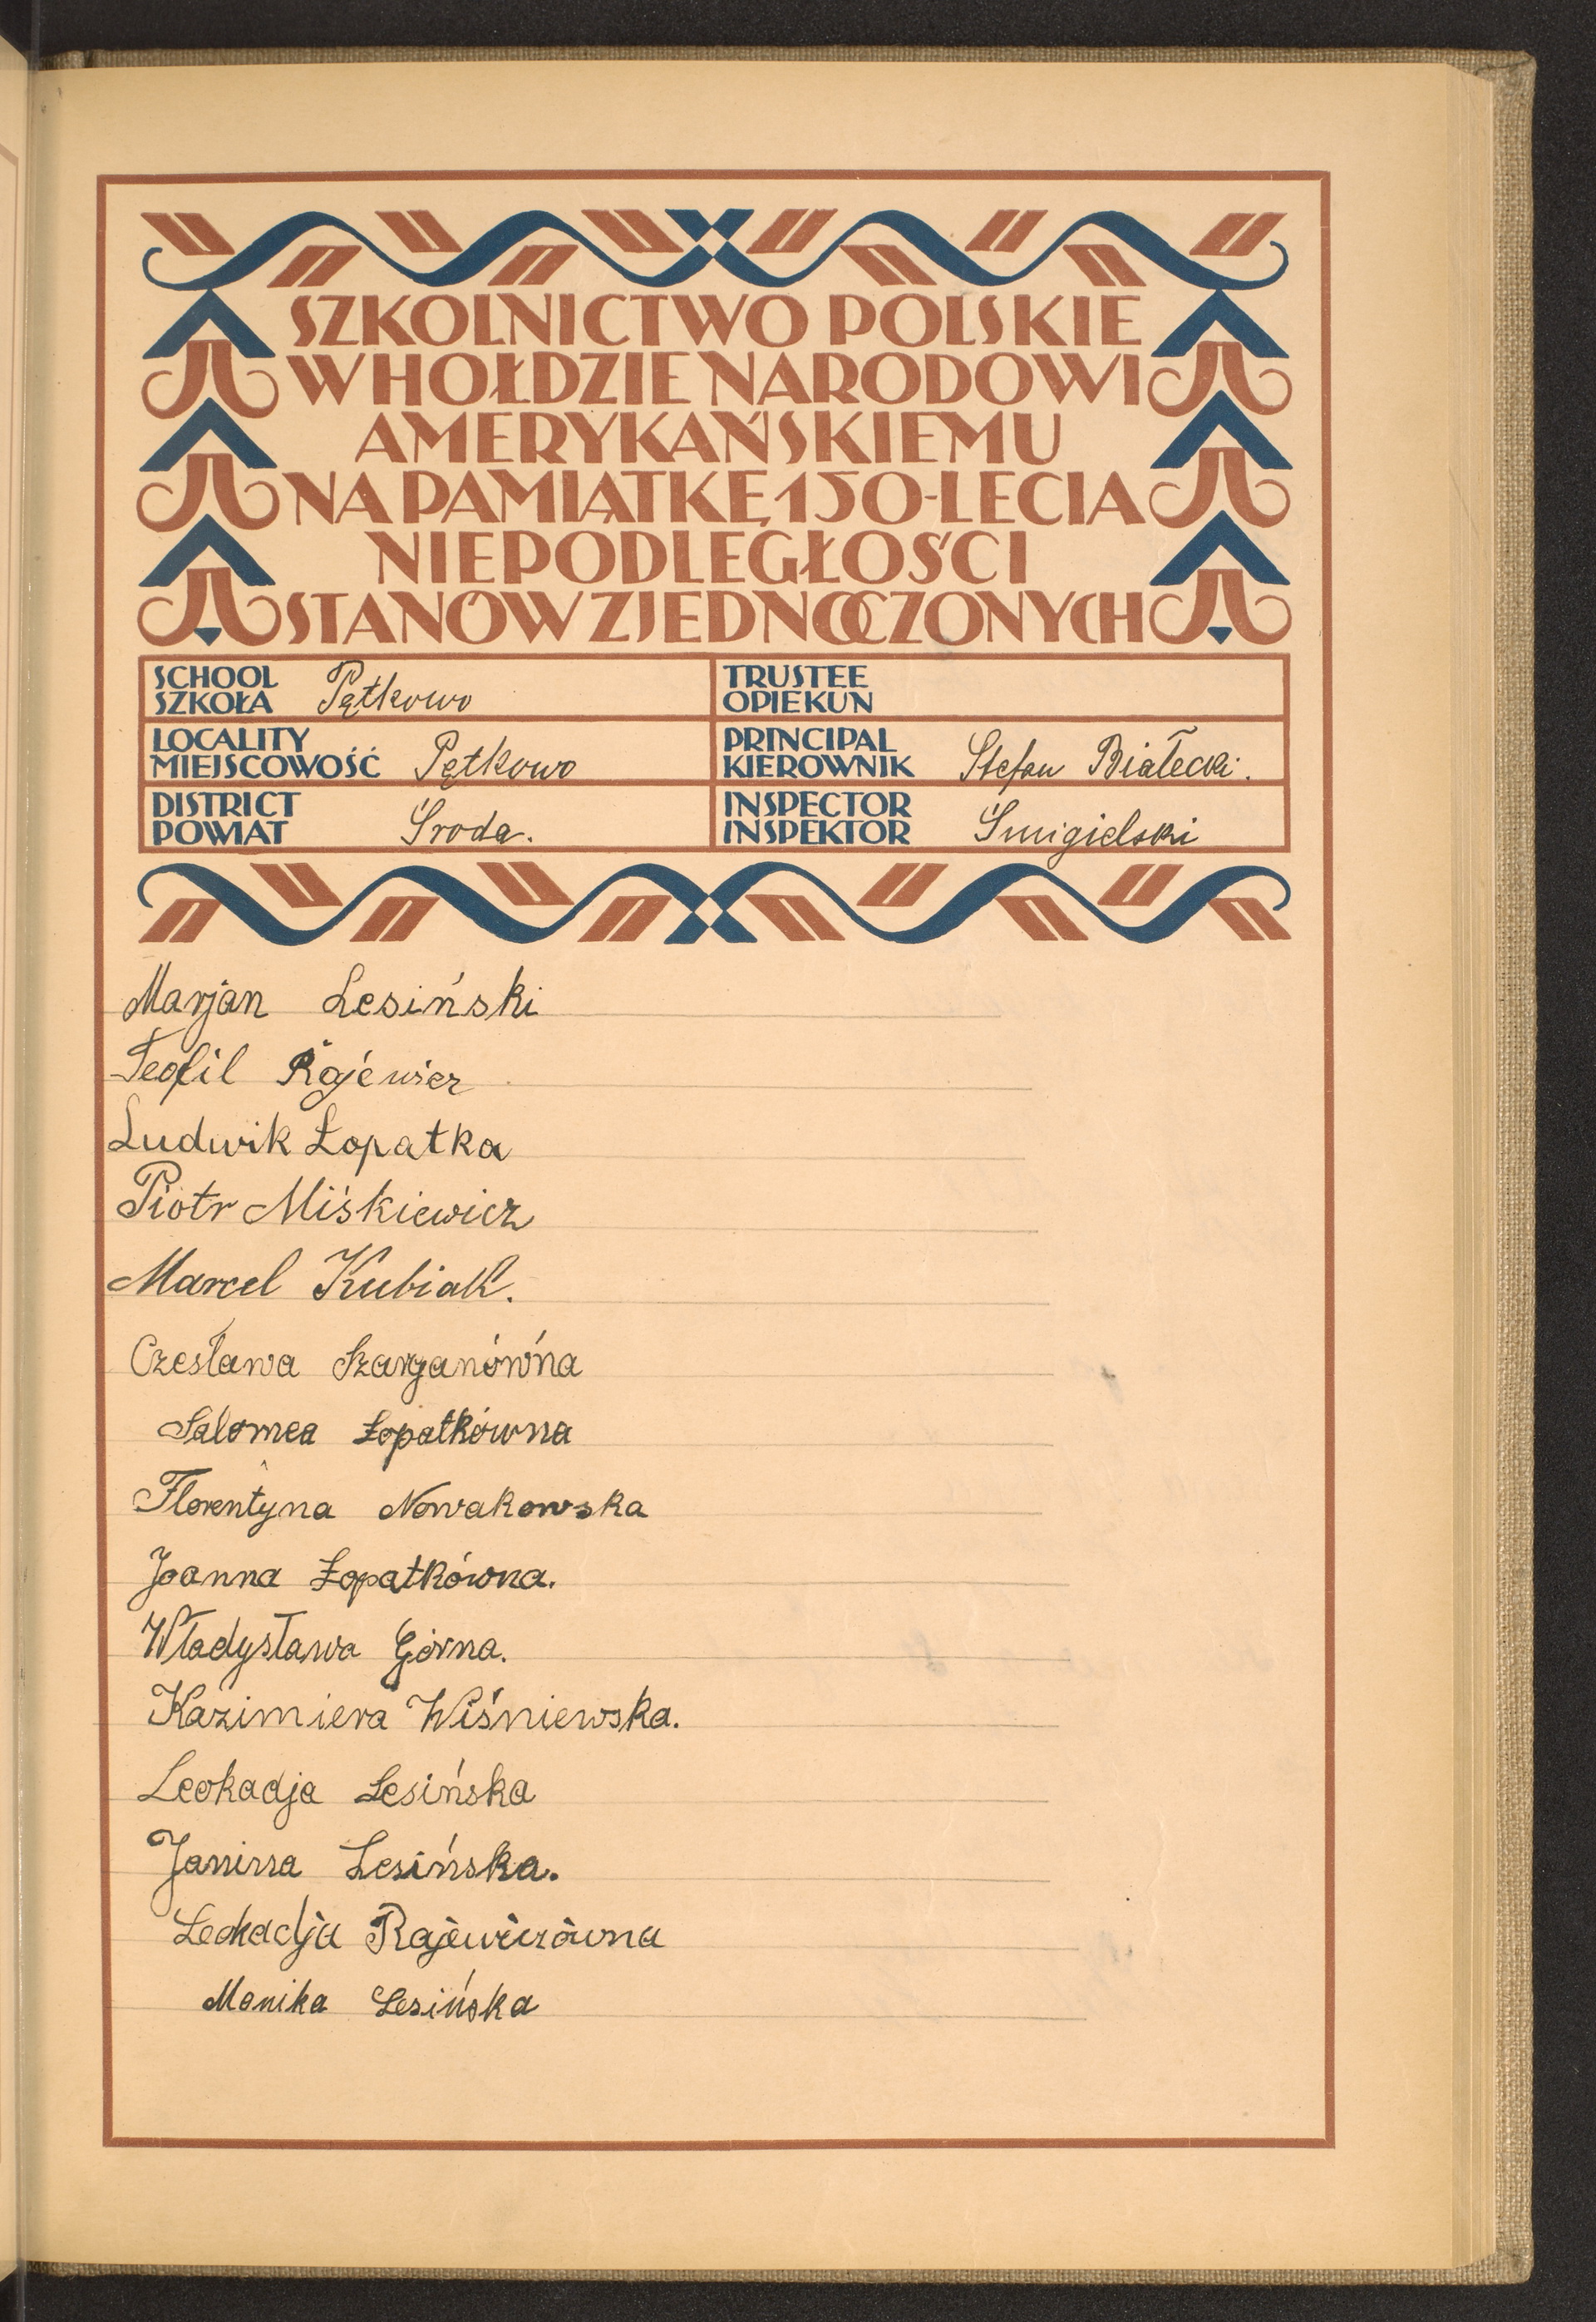 SZKOLNICTWO POLSKIE
W HOŁDZIE NARODOWI
AMERYKAŃSKIEMU
NA PAMIĄTKĘ 150-LECIA
NIEPODLEGŁOŚCI
STANÓW ZJEDNOCZONYCH
SCHOOL
SZKOŁA Pętkowo
TRUSTEE
OPIEKUN
LOCALITY
MIEJSCOWOŚĆ Pętkowo
PRINCIPAL
KIEROWNIK Stefan Białecki.
DISTRICT
POWIAT Środa.
INSPECTOR
INSPEKTOR Śmigielski
Marjan Lesiński
Teofil Rajewicz
Ludwik Łopatka
Piotr Miśkiewicz
Marcel Kubiak.
Czesława Szarganówna
Salomea Łopatkówna
Florentyna Nowakowska
Joanna Łopatkówna.
Władysława Górna.
Kazimiera Wiśniewska.
Leokadja Lesińska
Janina Lesińska.
Leokadja Rajewiczówna
Monika Lesińska